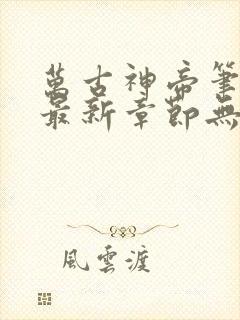 萬古神帝筆
最新章節無
風雲渡